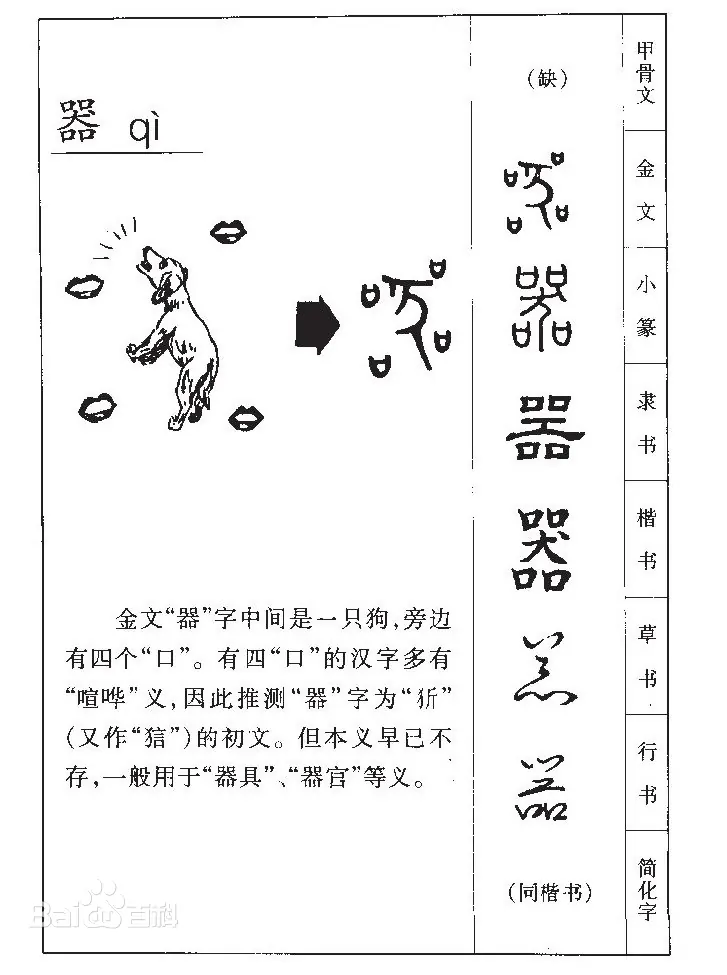 器 qì
金文“器”字中间是一只狗,旁边
有四个“口”。有四“口”的汉字多有
“喧哗”义,因此推测“器”字为“狾”
(又作“狺”)的初文。但本义早已不
存,一般用于“器具”、“器官”等义。
(缺)
甲骨文
金文
小篆
隶书
楷书
草书
行书
(同楷书)
简化字
Bai百科